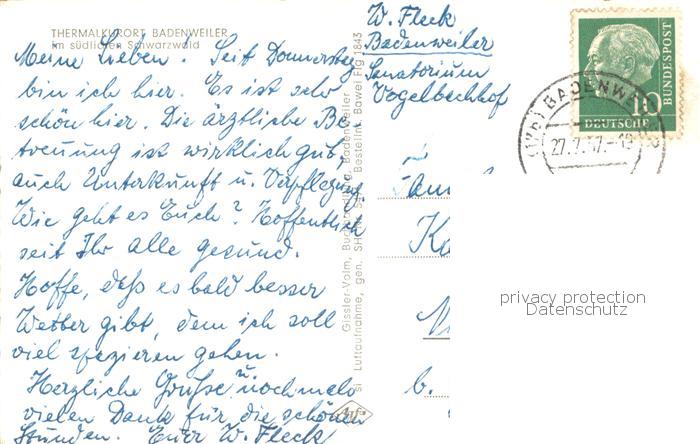 THERMALKURORT BADENWEILER
im südlichen Schwarzwald
Meine Lieben. Seit Donnerstag
bin ich hier. Es ist sehr
schön hier. Die ärztliche Be-
treuung ist wirklich gut,
auch Unterkunft u. Verpflegung.
Wie geht es Euch? Hoffentlich
seit Ihr alle gesund.
Hoffe, daß es bald besser
Wetter gibt, denn ich soll
viel spazieren gehen.
Herzliche Grüße u. nochmals
vielen Dank für die schönen
Stunden. Euer W. Fleck
Gissler-Volm, Badenweiler
Luftaufnahme, gen. Bestellnr. Bawei Flg 1843
W. Fleck
Badenweiler
Sanatorium
Vogelbachhof
BADENWEI
27.7.57.-18
10
DEUTSCHE
BUNDESPOST
Fam
b.
privacy protection
Datenschutz